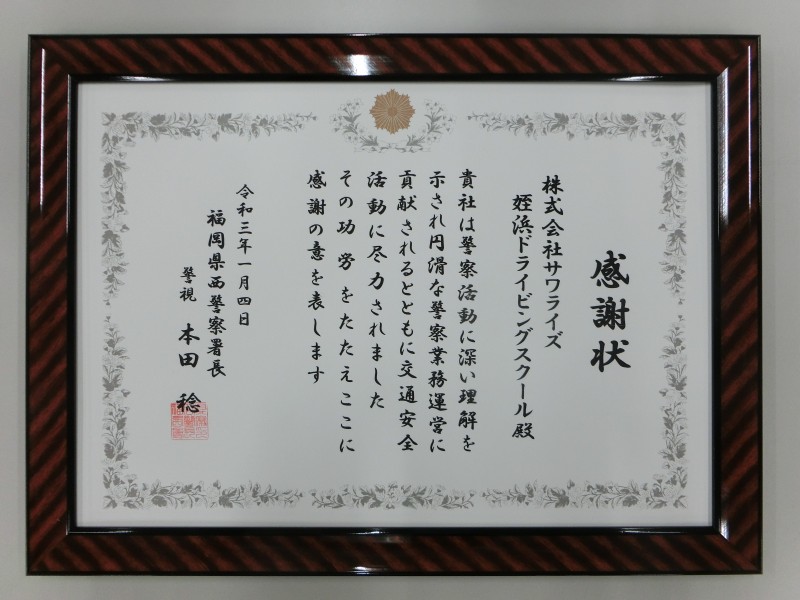 感謝状
株式会社サワライズ
姪浜ドライビングスクール殿
貴社は警察活動に深い理解を
示され円滑な警察業務運営に
貢献されるとともに交通安全
活動に尽力されました
その功労をたたえここに
感謝の意を表します
令和三年一月四日
福岡県西警察署長
警視 本田 稔